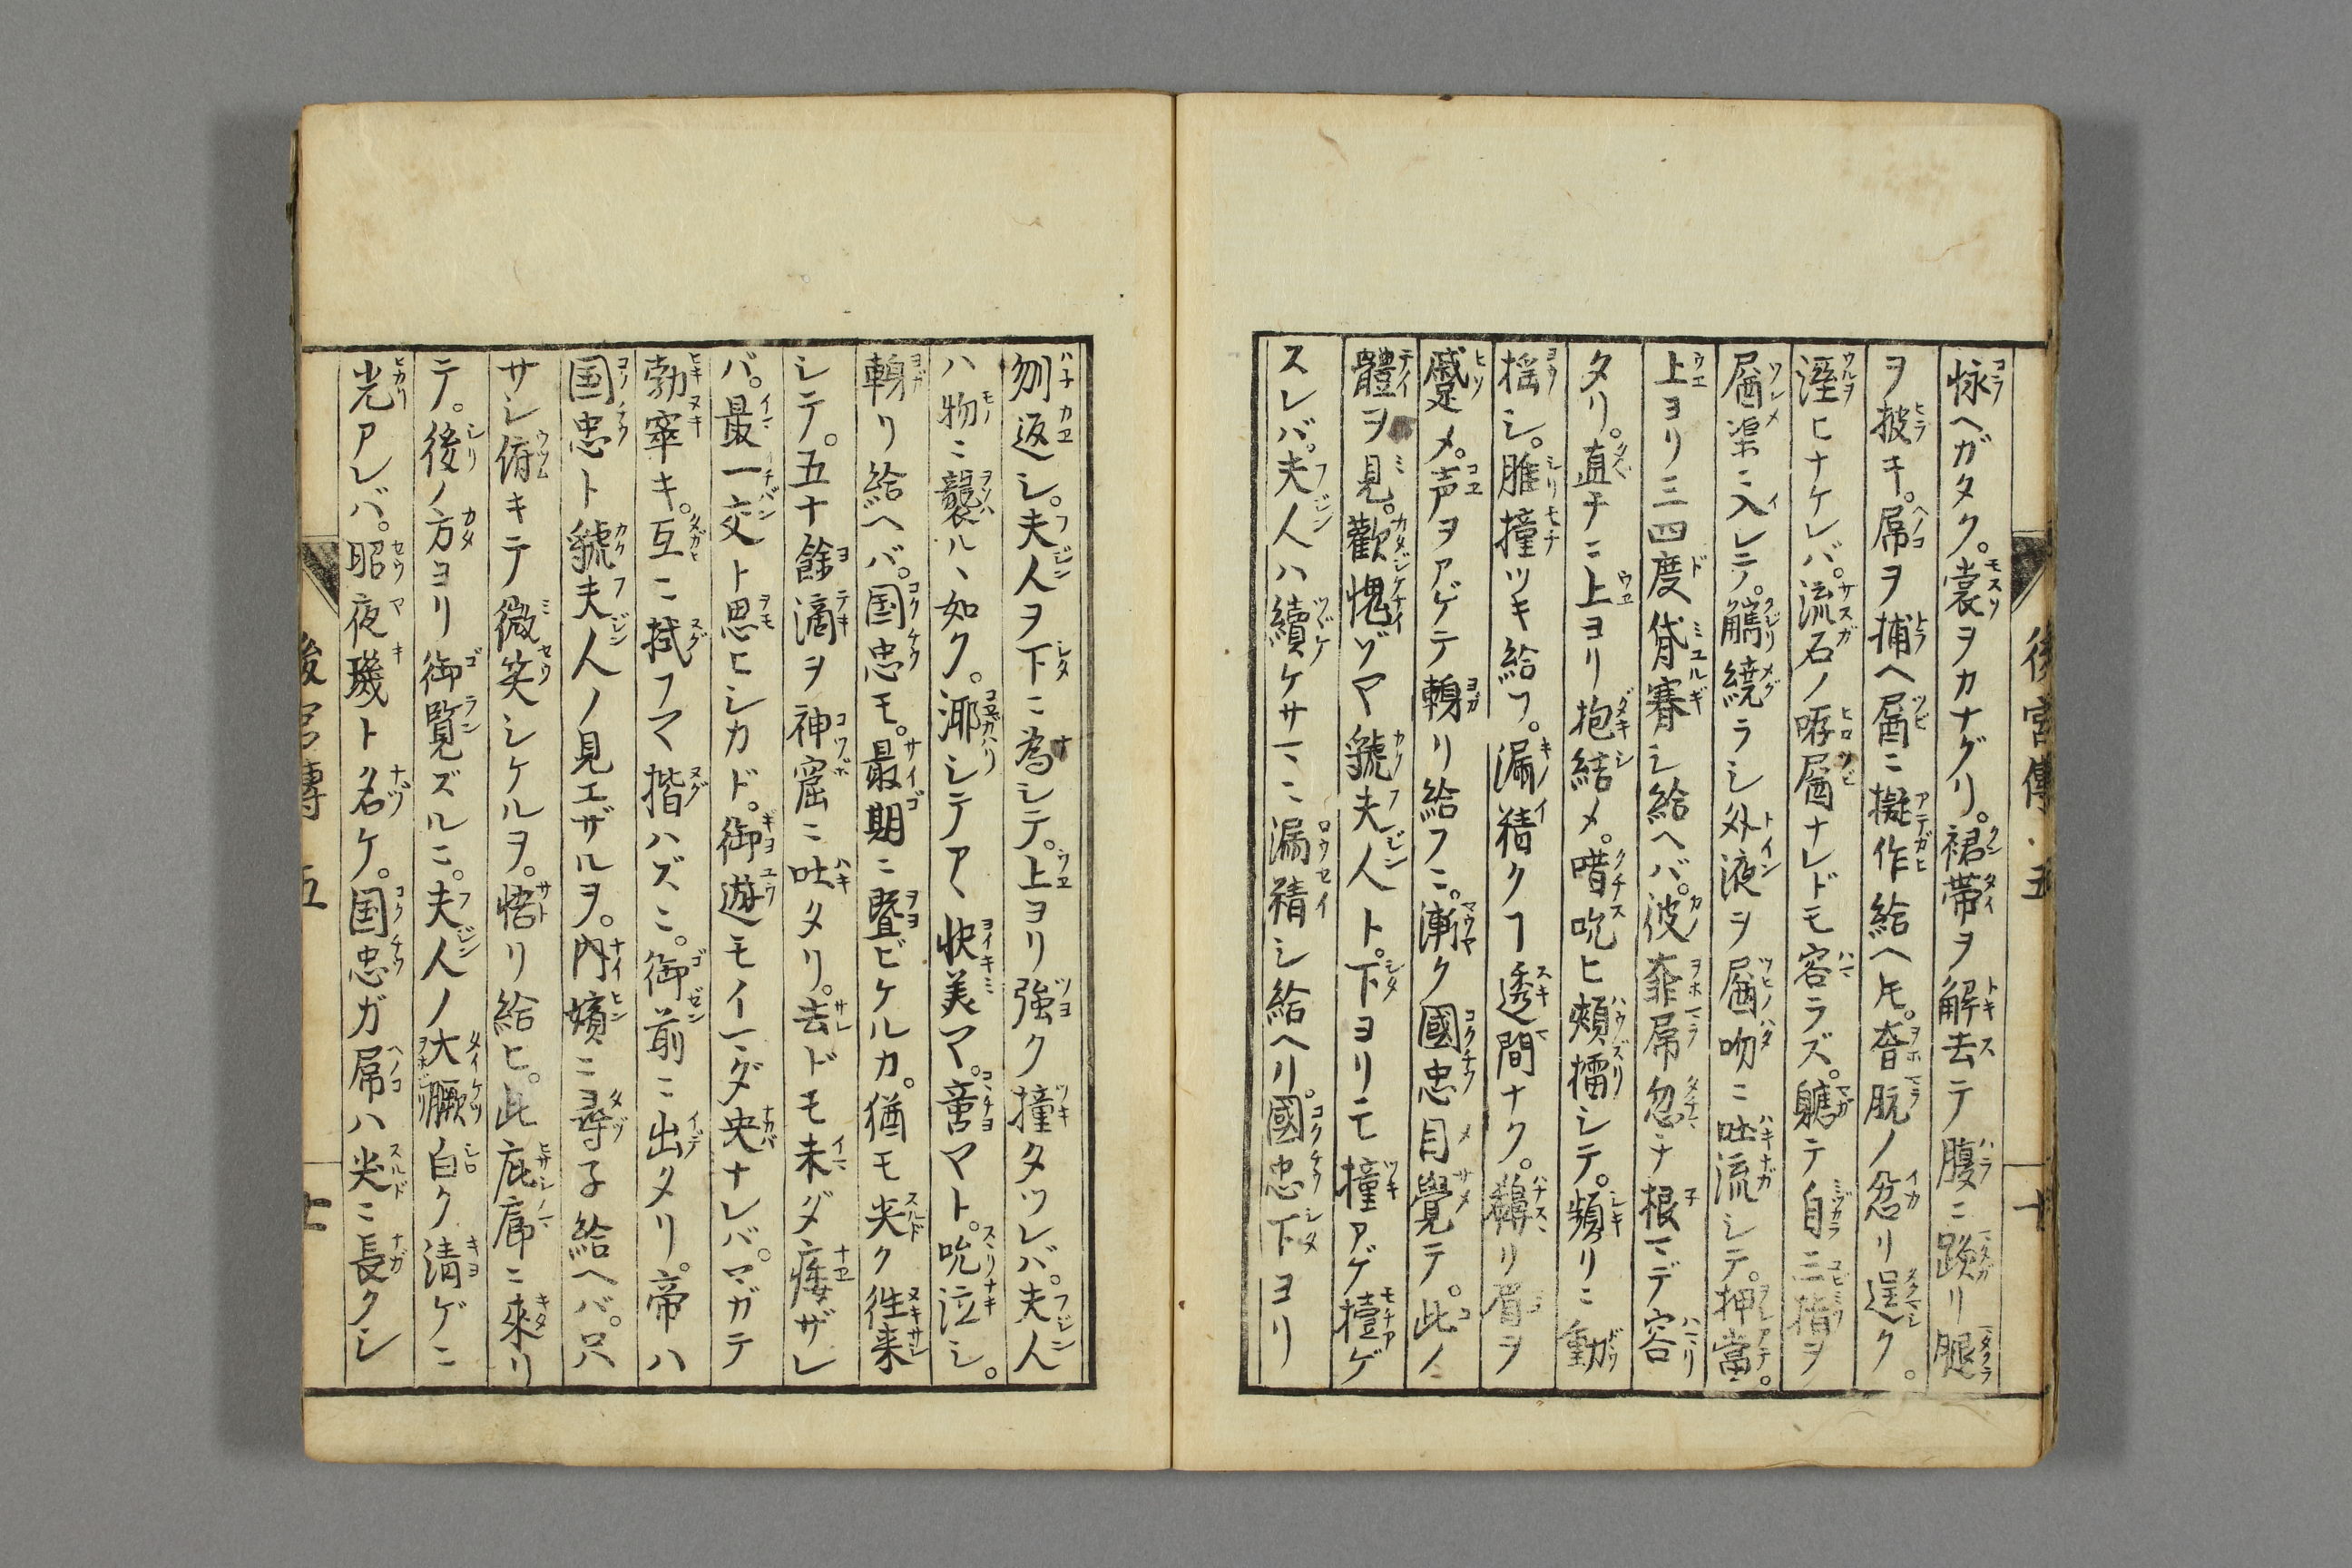 後宮傳 五
怺ヘガタク。裳ヲカナグリ。裙帯ヲ解去テ腹ニ跨リ腿
ヲ披キ。屌ヲ捕ヘ屄ニ擬作給ヘ𪜈。夻朊ノ忿リ逞ク。
溼ヒナケレバ。流石ノ屄ナレドモ容ラズ。軈テ自三指ヲ
屄渠ニ入レテ。觽繞ラシ外液ヲ屄吻ニ吐流シテ。押當。
上ヨリ三四度臠搴シ給ヘバ。彼屌忽チ根マデ容
タリ。直チニ上ヨリ抱結メ。噆吮ヒ頬擂シテ。頻リニ動
揺シ。脽撞ツキ給フ。漏精クフ透間ナク。鶴リ眉ヲ
蹙メ。声ヲアゲテ軪リ給フニ。漸ク國忠目覺テ。此ノ
體ヲ見。歡愧ヅマ虢夫人ト。下ヨリモ撞アゲ擡ゲ
スレバ。夫人ハ續ケサマニ漏精シ給ヘリ。國忠下ヨリ
刎返シ。夫人ヲ下ニ為シテ。上ヨリ強ク撞タツレバ。夫人
ハ物ニ襲ハルヽ如ク。シテアヽ快美マ。マト。吮泣シ。
軪リ給ヘバ。国忠モ。最期ニ暨ビケルカ。猶モ尖ク徃来
シテ。五十餘滴ヲ神窟ニ吐タリ。去ドモ未ダ痿ザレ
バ。最一交ト思ヒシカド。御遊モイマダ央ナレバ。マガテ
勃窣キ。互ニ拭フマ揩ハズニ。御前ニ出タリ。帝ハ
国忠ト虢夫人ノ見エザルヲ。内嬪ニ尋子給ヘバ。只
サシ俯キテ微笑シケルヲ。悟リ給ヒ。此庇廊ニ來リ
テ。後ノ方ヨリ御覧ズルニ。夫人ノ大臋白ク清ゲニ
光アレバ。昭夜璣ト名ケ。国忠ガ屌ハ尖ニ長クシ
後宮傳 五